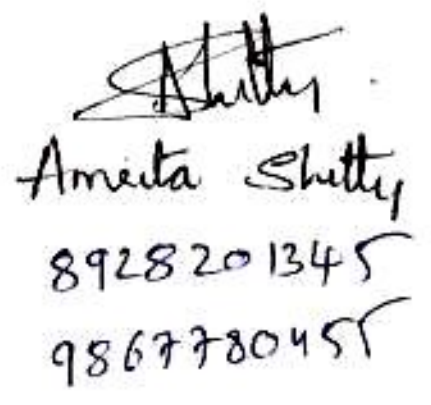 Shetty
Ameeta Shetty
8928201345
9867780455